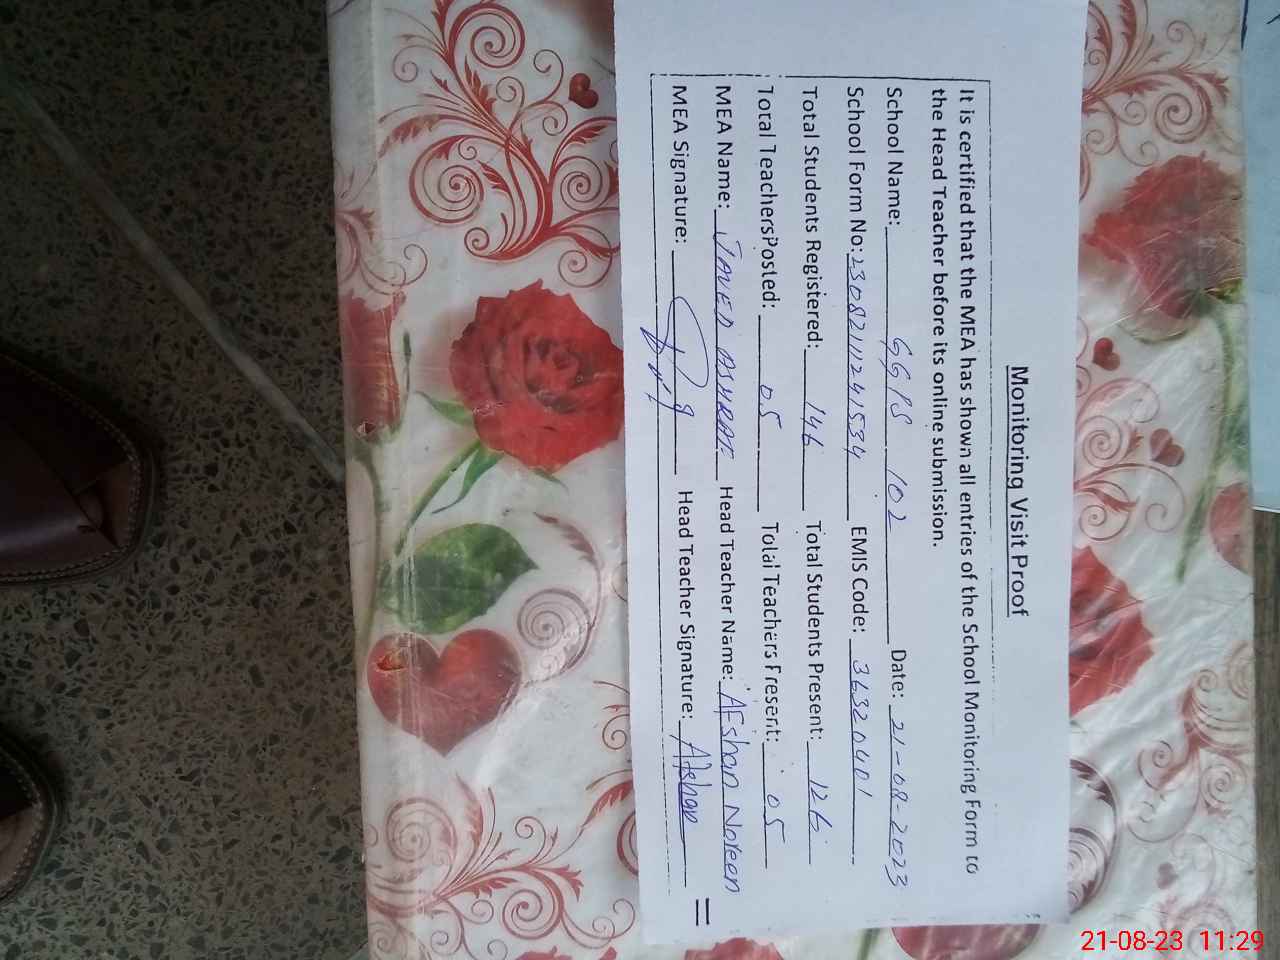 Monitoring Visit Proof
It is certified that the MEA has shown all entries of the School Monitoring Form to
the Head Teacher before its online submission.
School Name: GGPS 102 Date: 21-08-2023
School Form No: 23082111241534 EMIS Code: 36320401
Total Students Registered: 146 Total Students Present: 126
Total Teachers Posted: 05 Total Teachers Present: 05
MEA Name: JAVED Head Teacher Name: AFshan Noreen
MEA Signature: Head Teacher Signature: Afshan
21-08-23 11:29